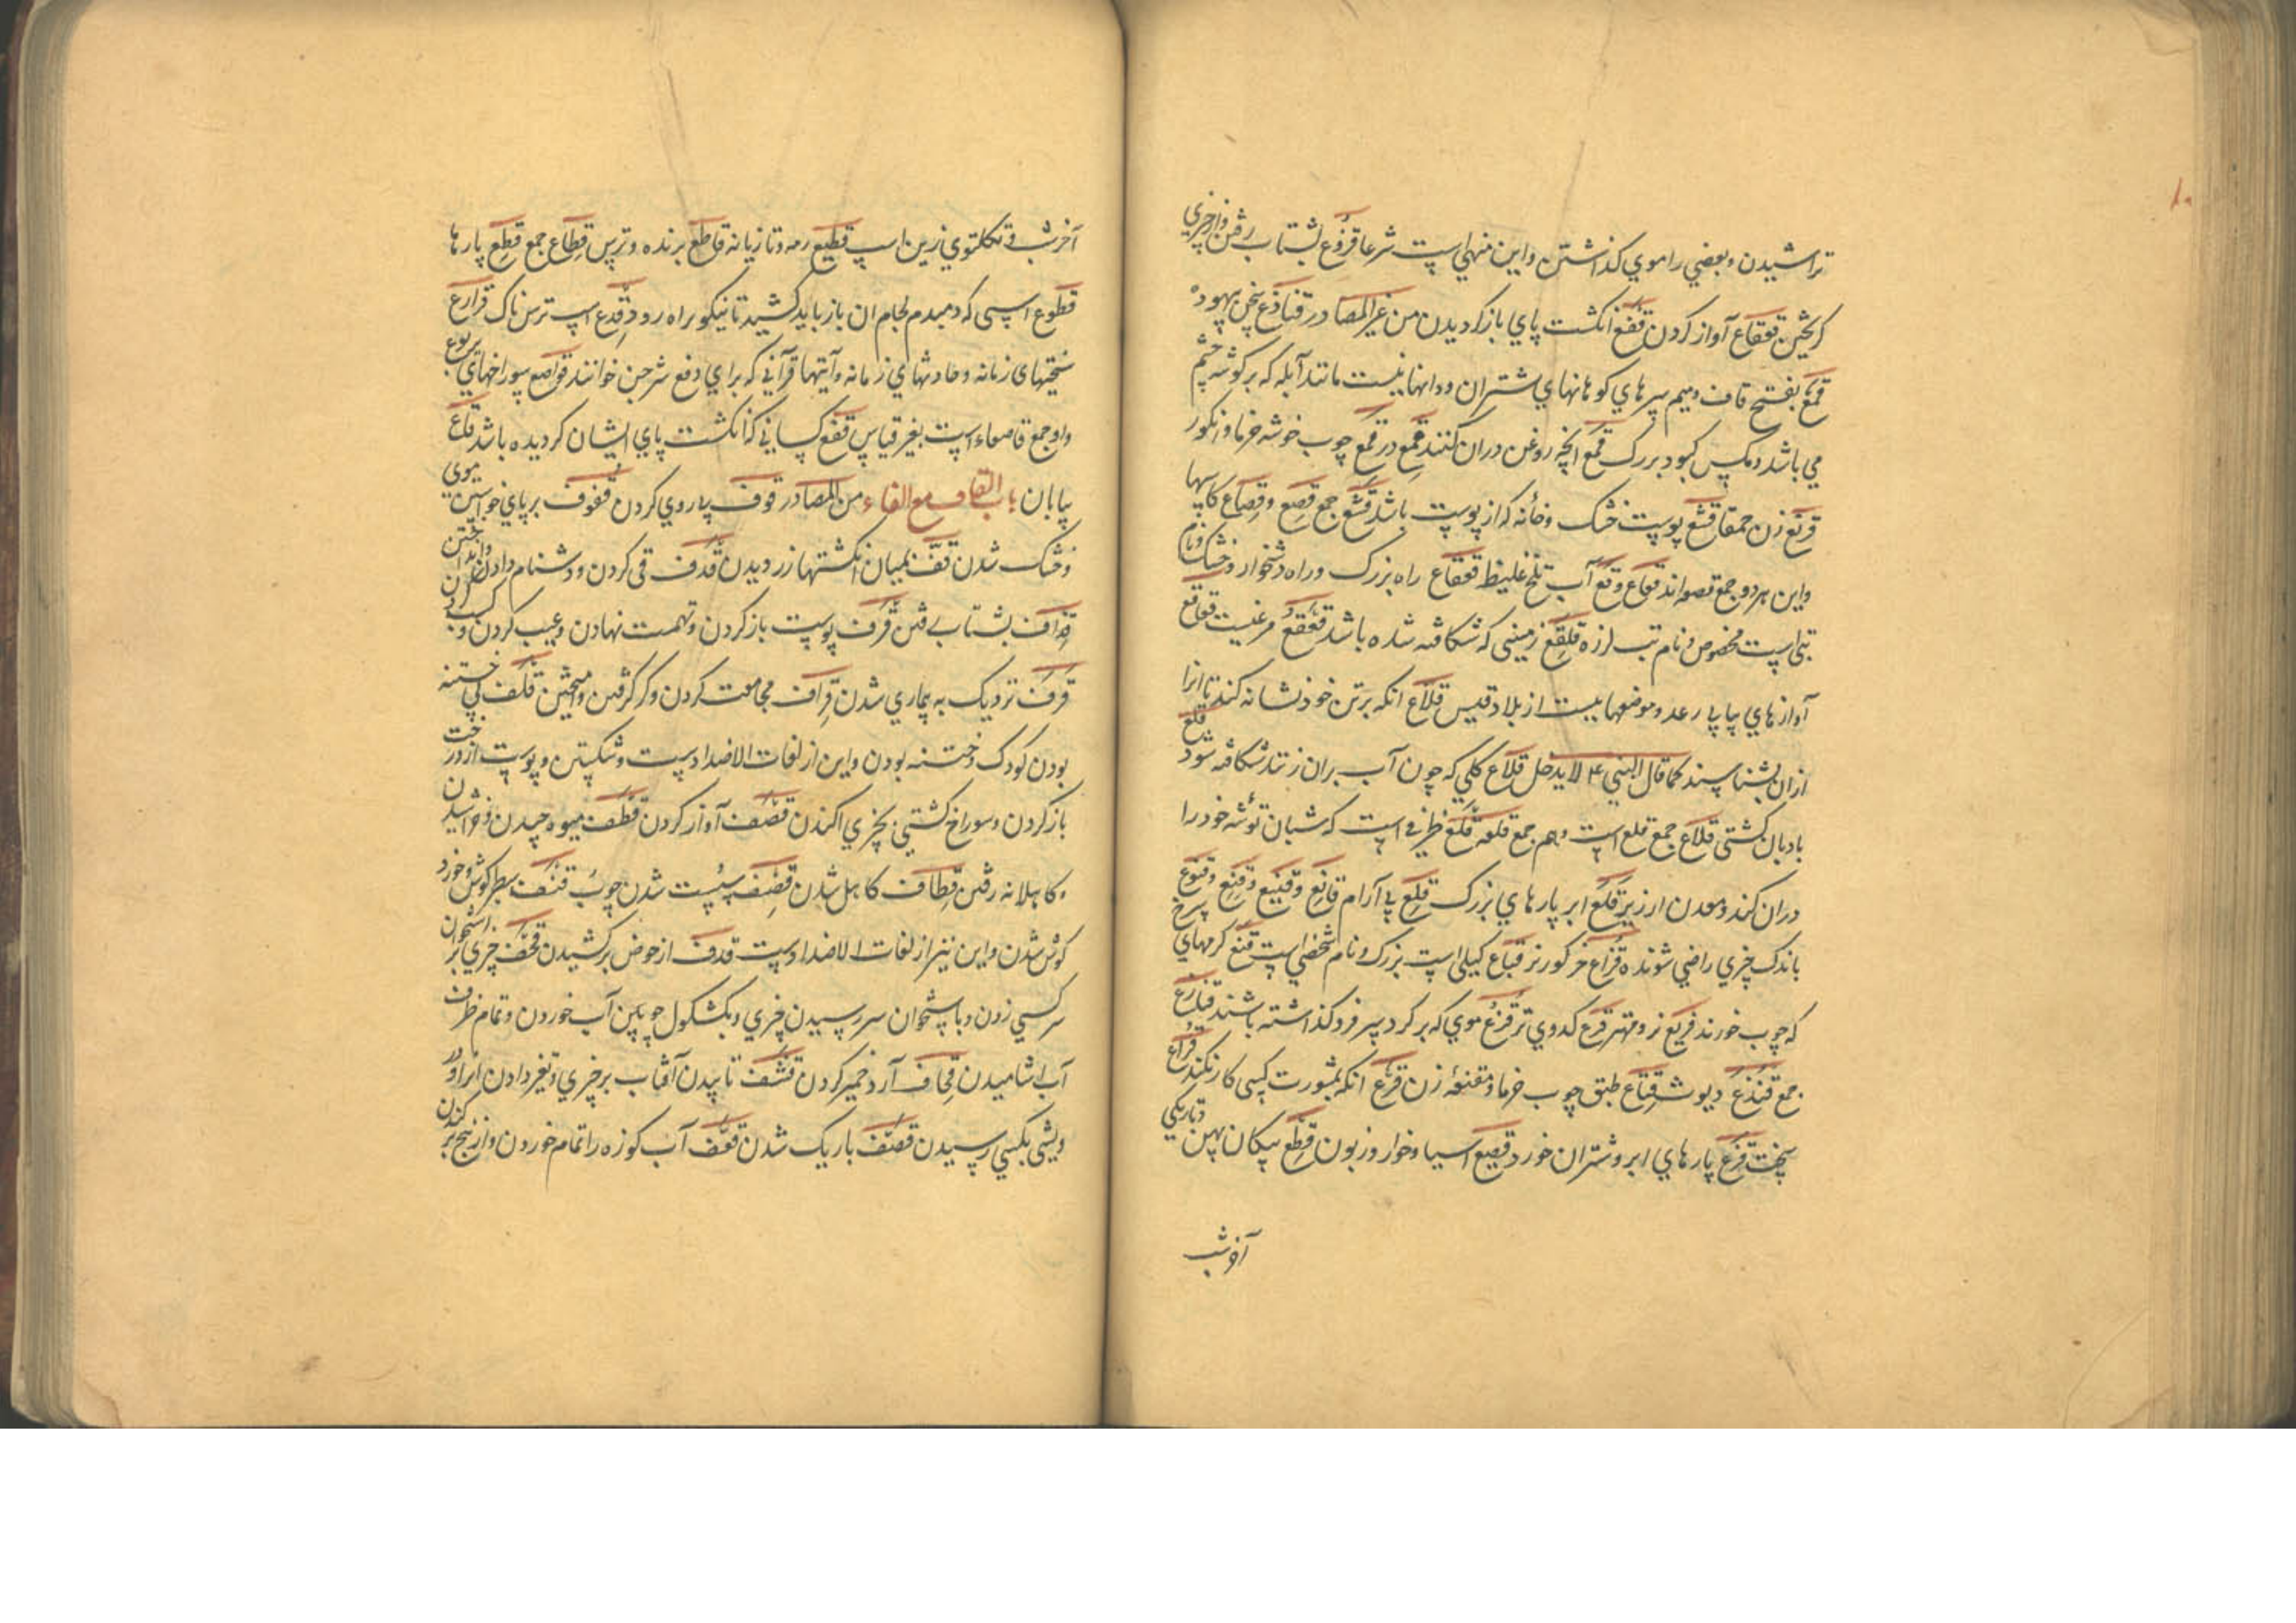 تراشیدن و بعضی را موی کذاشتن و این منهی است شرعا قزوع بشتاب رفتن و از چیزی
کریختن قعقاع آواز کردن قفع انکشت پای باز کردیدن من غیر المصادر قناذع سخن بیهوده
قمع بفتح قاف و میم سرهای کوهانهای شتران و دانهائیست مانند آبله که بر کوشه چشم
می باشد و مکس کبود بزرک قمع انچه روغن دران کنند قمع در قمع چوب خوشه خرما و انکور
قرثع زن حمقا قشع پوست خشک و خانه که از پوست باشد قشع جمع قصع و قصاع کاسها
و این هر دو جمع قصعه اند قعاع و قع آب تلخ غلیظ قعقاع راه بزرک و راه دشخوار و خشک و نام
تبی است مخصوص و نام تب لرزه قلقع زمینی که شکافته شده باشد قعقع مرغیست قعاقع
آوازهای پیاپی رعد و موضعهاییست از بلاد قیس قلاع انکه بر تن خود نشانه کند تا انرا
ازان بشناسند کما قال النبی ۴ لا یدخل قلاع کلی که چون آب بران زنند شکافته شود قلع
بادبان کشتی قلاع جمع قلع است و هم جمع قلعه قلع ظرفی است که شبان توشه خود را
دران کند و معدن ارزیز قلع ابر پارهای بزرک قلع بی آرام قانع و قنیع و قنع و قنوع
باندک چیزی راضی شونده قراع خر کور نر قباع کیلی است بزرک و نام شخصی است قنع کرمهای سرخ
که چوب خورند قریع نر و مهتر قرع کدوی تر قزع موی که بر کرد سر فرو کذاشته باشند قنازع
جمع قنذع دیوث قناع طبق چوب خرما و مقنعه زن قرع انکه بمشورت کسی کار نکند قراع
سخت قزع پارهای ابر و شتران خورد قصیع اسیا و خوار و زبون قطع پیکان پهن و تاریکی
آخر شب
آخر شب و تکلتوی زین اسپ قطیع رمه و تازیانه قاطع برنده و ترس قطاع جمع قطع پارها
قطوع اسپی که دمبدم لجام ان باز باید کشید تا نیکو براه رود قدع اسپ ترسناک قوارع
سختیهای زمانه و حادثهای زمانه و آیتهای قرآنی که برای دفع شر جن خوانند قواصع سوراخهای یربوع
و او جمع قاصعاء است بغیر قیاس قفع کسانی که انکشت پای ایشان کردیده باشد قاع
بیابان باب القاف مع الفاء من المصادر قوف پیروی کردن قفوف بر پای خواستن موی
و خشک شدن قف بمیان انکشتها زر دزدیدن قذف قی کردن و دشنام دادن و انداختن
قذاف بشتاب رفتن قرف پوست باز کردن و تهمت نهادن و عیب کردن و کسب کردن
قرف نزدیک به بیماری شدن قراف مجامعت کردن و کر کرفتن و امیختن قلف بی ختنه
بودن کودک و ختنه بودن و این از لغات الاضداد ست و شکستن و پوست از درخت
باز کردن و سوراخ کشتی بچیزی اکندن قصف آواز کردن قطف میوه چیدن و خراشیدن
و کاهلانه رفتن قطاف کاهل شدن قصف سست شدن چوب قنف سطبر کوش و خورد
کوش شدن و این نیز از لغات الاضداد ست قدف از حوض برکشیدن قحف چیزی بر استخوان
سر کسی زدن و باستخوان سر رسیدن چیزی و بکشکول چوبین آب خوردن و تمام ظرف
آب اشامیدن قحاف آرد خمیر کردن قشف تابیدن آفتاب بر چیزی و تغیر دادن انرا و در
ویشی بکسی رسیدن قضف باریک شدن قعف آب کوزه را تمام خوردن و از بیخ بر کندن